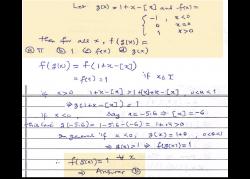 Let g(x) = 1+x-[x] and f(x) = { -1, x<0
0, x=0
1, x>0
then for all x, f(g(x)) =
(a) x (b) 1 (c) f(x) (d) g(x)
f(g(x)) = f(1+x-[x])
= f(1) = 1 if x ∈ I
if x>0 1+x-[x]
⇒ g(1+x-[x]) = 1
if x<0, x=-5.6 ⇒ [x] = -6
In general if x<0,
⇒ g(x) > 1 ⇒ f(g(x)) = 1
∴ f(g(x)) = 1 ∀ x
⇒ Answer (b)